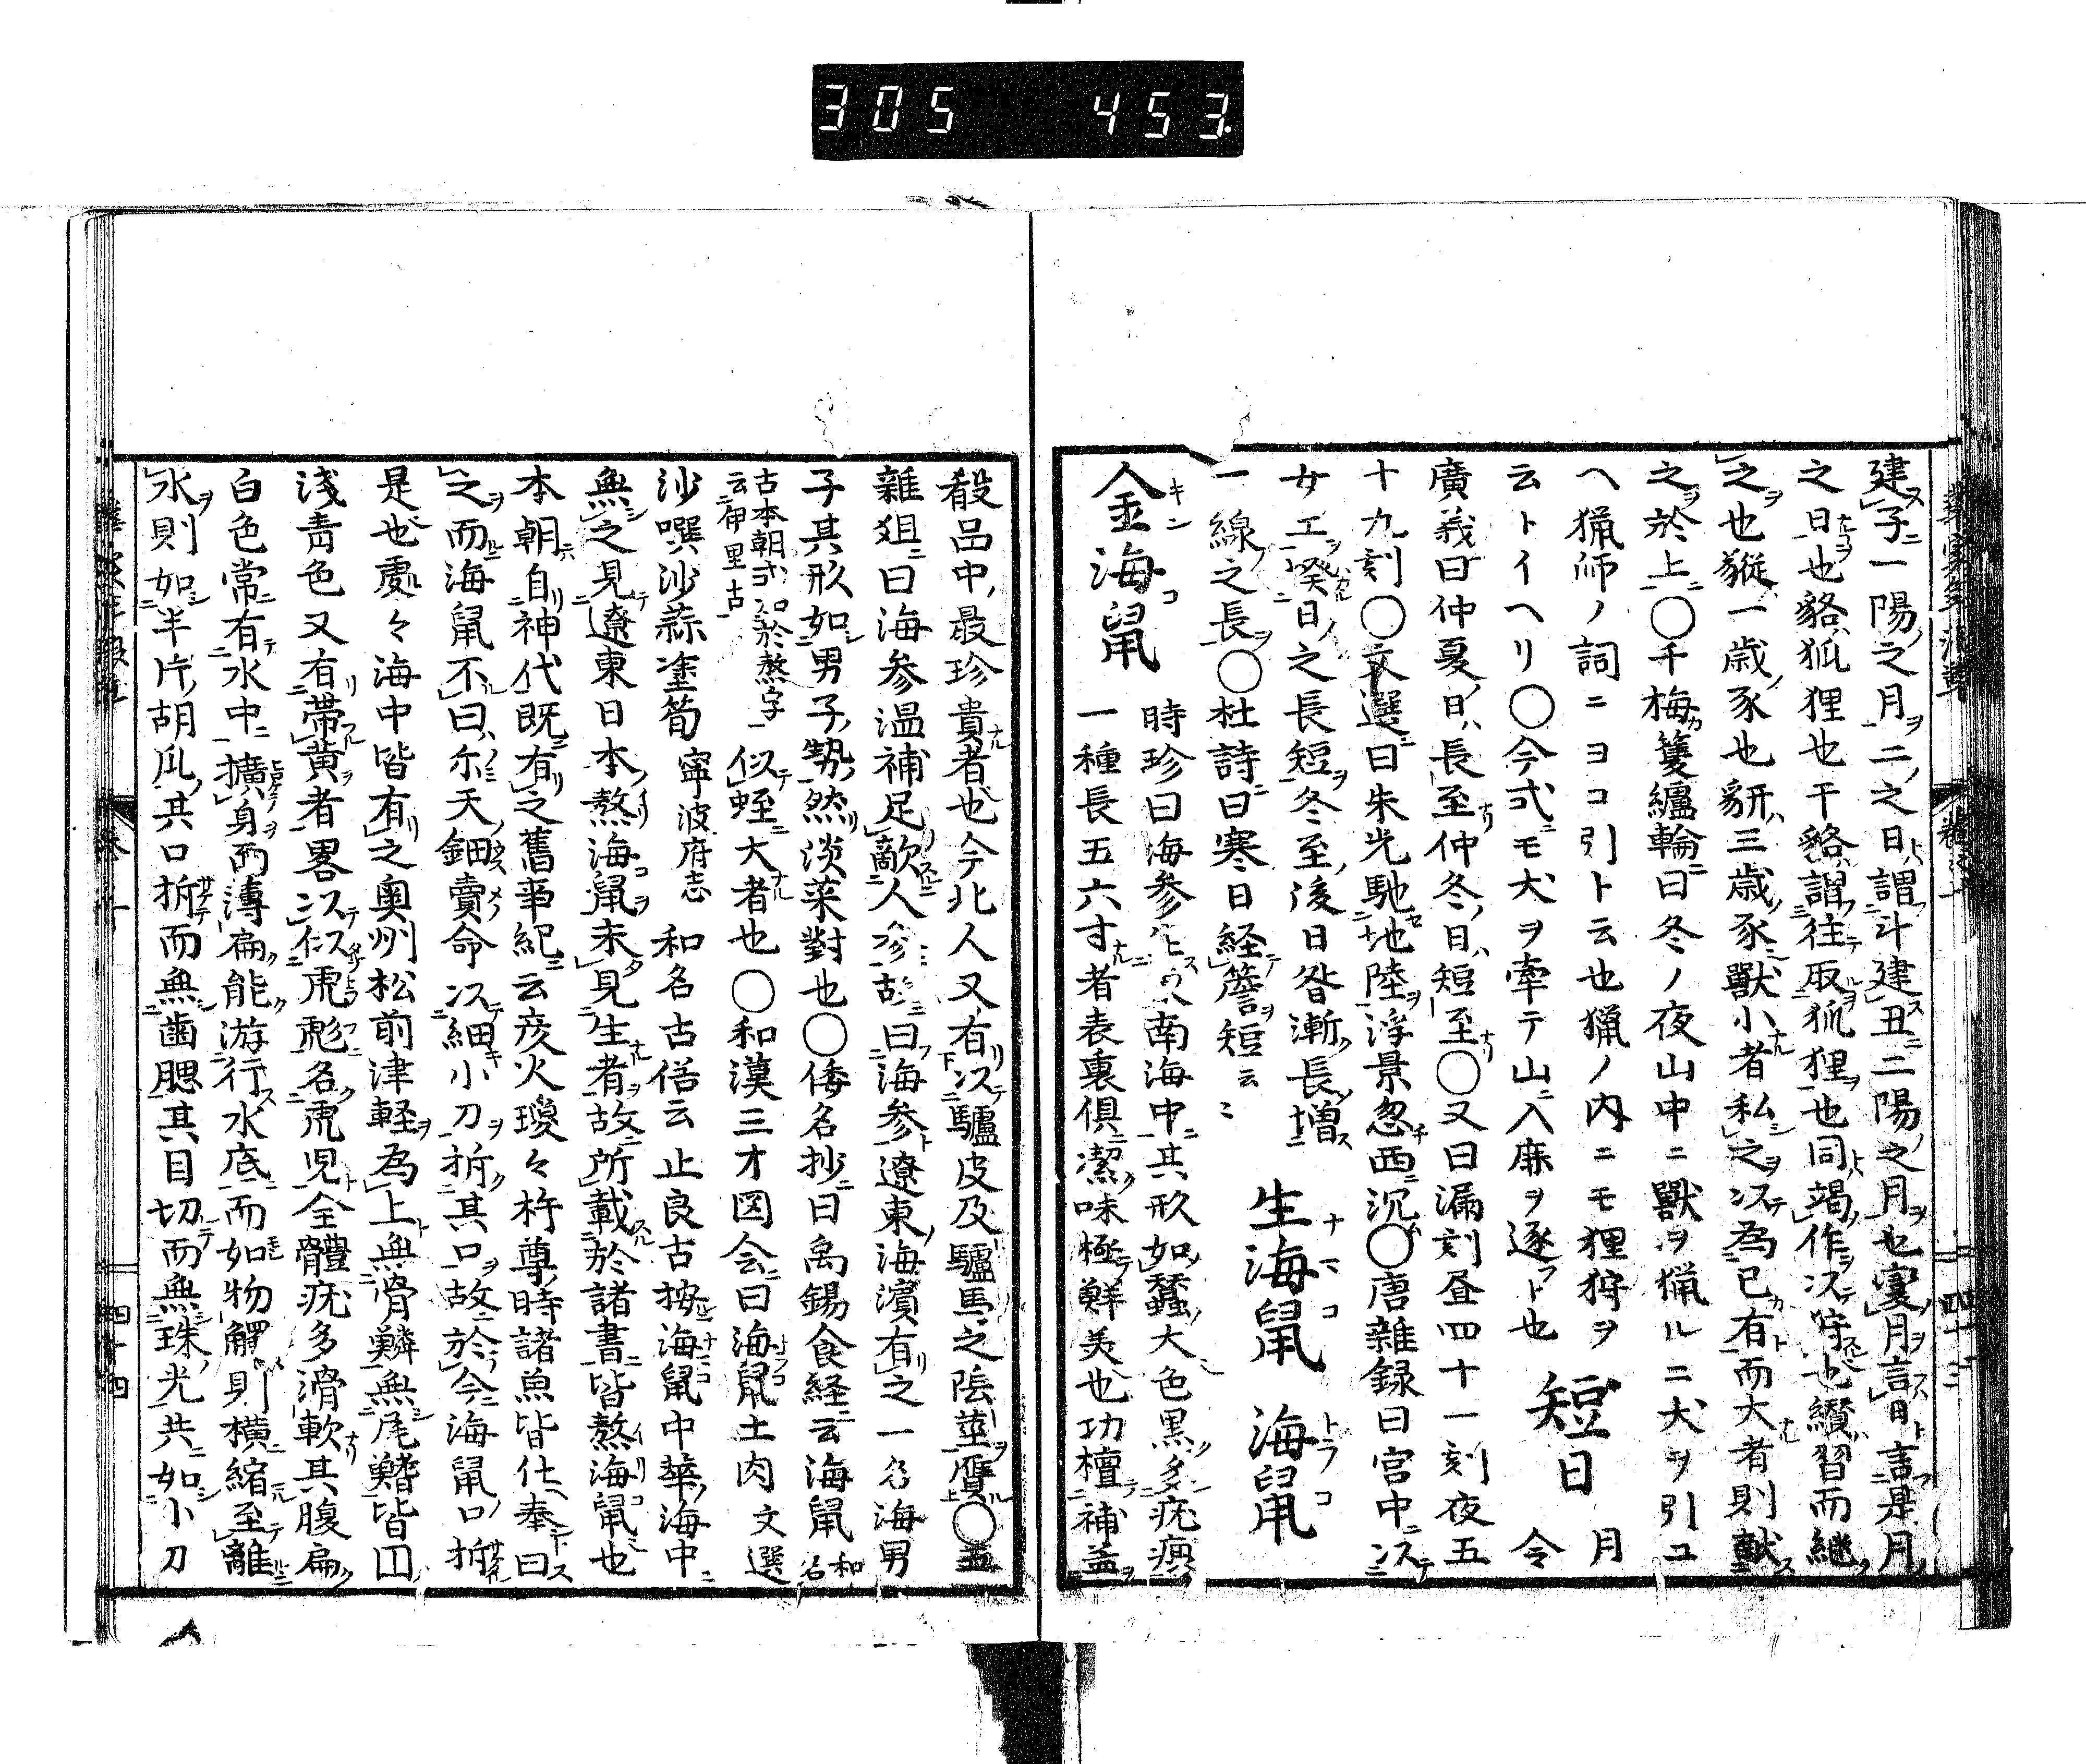 305 453
建子一陽之月二之日謂斗建丑二陽之月也夏月言日言是月
之日也貉狐狸也于貉謂往取狐狸也同竭作以狩也纘習而継
之也豵一歳豕也豣三歳豕獸小者私之以為己有而大者則獻
之於上〇千梅篗纑輪曰冬ノ夜山中ニ獸ヲ猟ルニ犬ヲ引ユ
ヘ猟師ノ詞ニヨコ引ト云也猟ノ内ニモ狸狩ヲ
云トイヘリ〇今式モ犬ヲ牽テ山ニ入麻ヲ逐フト也
短日
月令
廣義曰仲夏日長至仲冬日短至〇又曰漏刻昼四十一刻夜五
十九刻〇文選曰朱光馳北陸浮景忽西沉〇唐雜録曰宮中以
女工揆日之長短冬至後日晷漸長増
一線之長〇杜詩曰寒日経簷短云〻
生海鼠 ナマコ
海鼠 トラコ
金海鼠 キンコ
時珍曰海参生東南海中其形如蠶大色黒多疣痺
一種長五六寸者表裏俱潔味極鮮美也功檀補益
殽品中最珍貴者也今北人又有以驢皮及驢馬之陰莖贋〇五
雜俎曰海参温補足敵人参故曰海参遼東海濱有之一名海男
子其形如男子勢然淡菜對也〇倭名抄曰禹錫食経云海鼠 和名
古本朝式加於熬字
云伊里古
似蛭大者也〇和漢三才図会曰海鼠土肉 文選
沙噀沙蒜塗筍 寧波府志 和名古俗云止良古按海鼠中華海中
無之見遼東日本熬海鼠未見生者故所載於諸書皆熬海鼠也
本朝自神代既有之舊事紀云彦火瓊々杵尊時諸魚皆仕奉曰
之而海鼠不曰尓天鈿賣命以細小刀拆其口故於今海鼠口拆
是也處々海中皆有之奥州松前津軽為上無骨鱗無尾鰭皆凹
淺青色又有帶黄者畧以似虎彪名虎児全體疣多滑軟其腹扁
白色常有水中擴身而薄扁能游行水底而如物觸則横縮至離
水則如半片胡瓜其口拆而無齒腮其目切而無珠光共如小刀